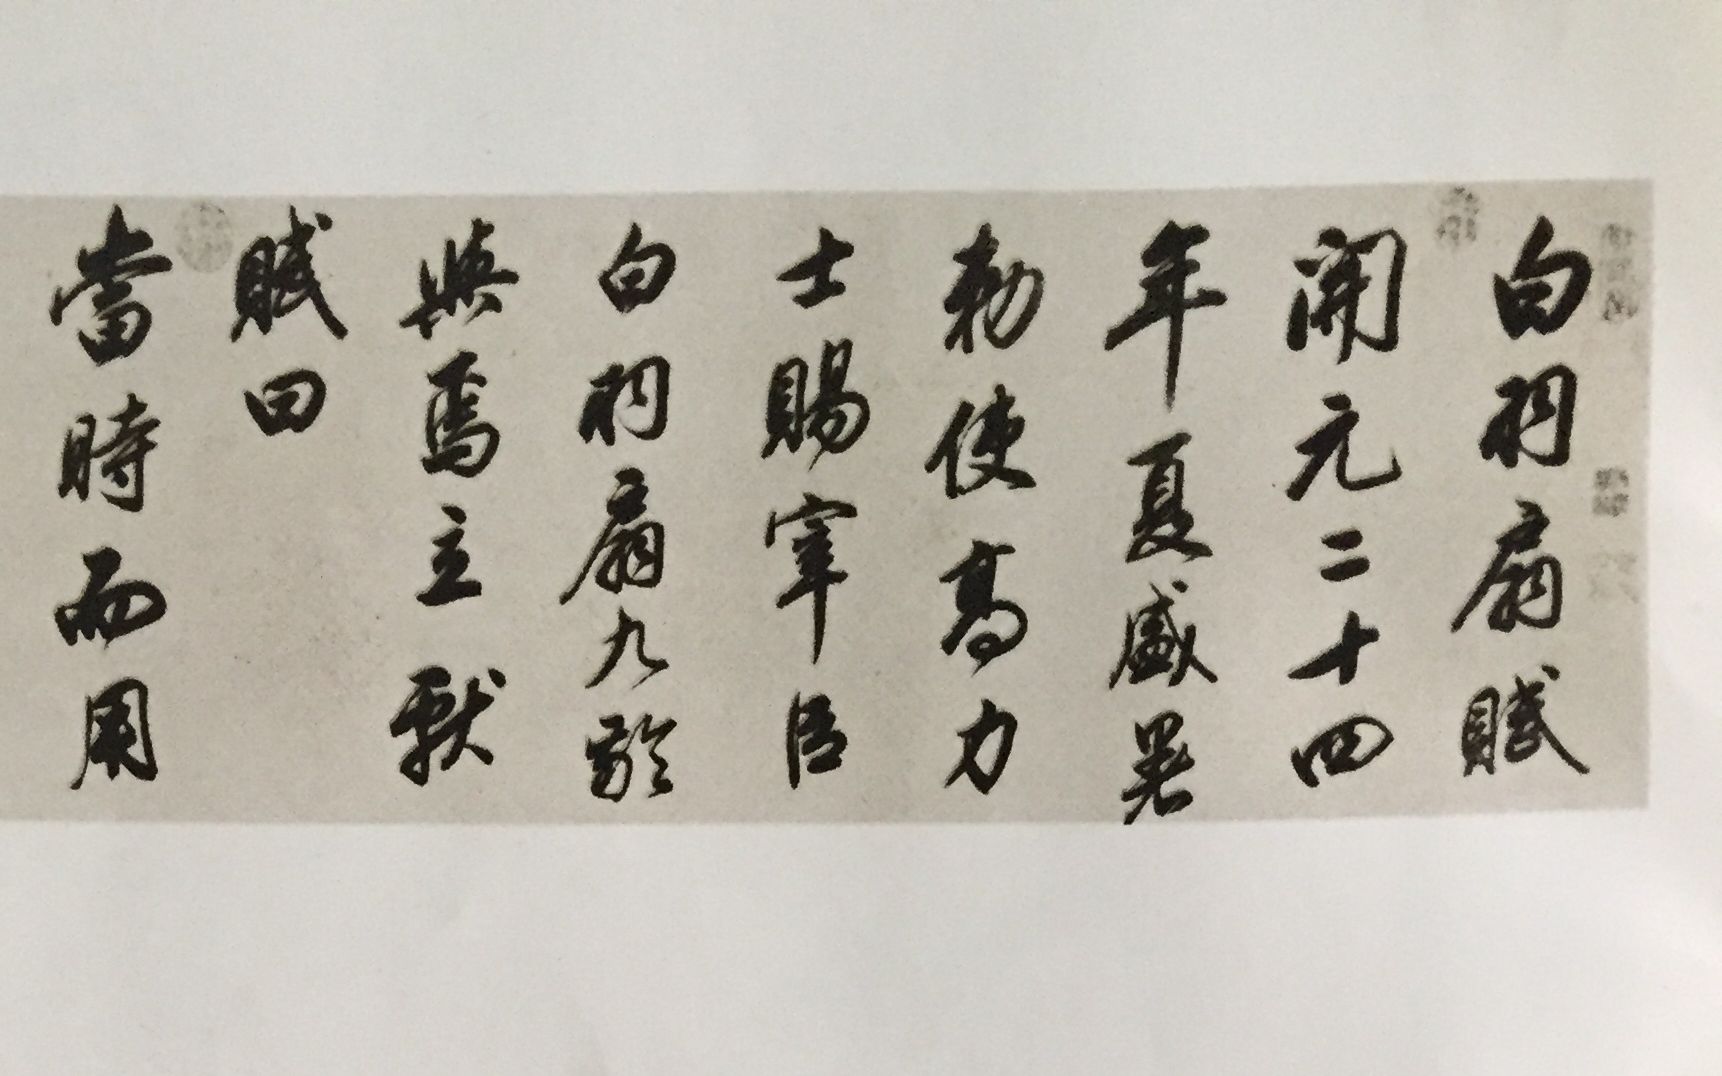 白羽扇賦
開元二十四
年夏盛暑
勑使高力
士賜宰臣
白羽扇九齡
與焉立獻
賦曰
當時而用